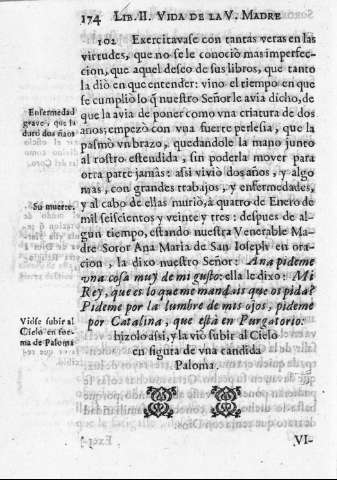 174 LIB. II. VIDA DE LA V. MADRE
102 Exercitavase con tantas veras en las
virtudes, que no se le conociò mas imperfec-
cion, que aquel deseo de sus libros, que tanto
la diò en que entender: vino el tiempo en que
se cumpliò lo q̃ nuestro Señor le avia dicho, de
Enfermedad
grave, que la
durò dos años
que la avia de poner como vna criatura de dos
años; empezò con vna fuerte perlesia, que la
pasmò vn brazo, quedandole la mano junto
al rostro estendida, sin poderla mover para
otra parte jamàs: assi viviò dos años, y algo
mas, con grandes trabajos, y enfermedades,
Su muerte.
y al cabo de ellas muriò, à quatro de Enero de
mil seiscientos y veinte y tres: despues de al-
gun tiempo, estando nuestra Venerable Ma-
dre Soror Ana Maria de San Ioseph en ora-
cion, la dixo nuestro Señor: Ana pideme
vna cosa muy de mi gusto: ella le dixo: Mi
Rey, que es lo que me mandais que os pida?
Pideme por la lumbre de mis ojos, pideme
Viòse subir al
Cielo en for-
ma de Paloma
por Catalina, que està en Purgatorio:
hizolo assi, y la viò subir al Cielo
en figura de vna candida
Paloma.
VI-